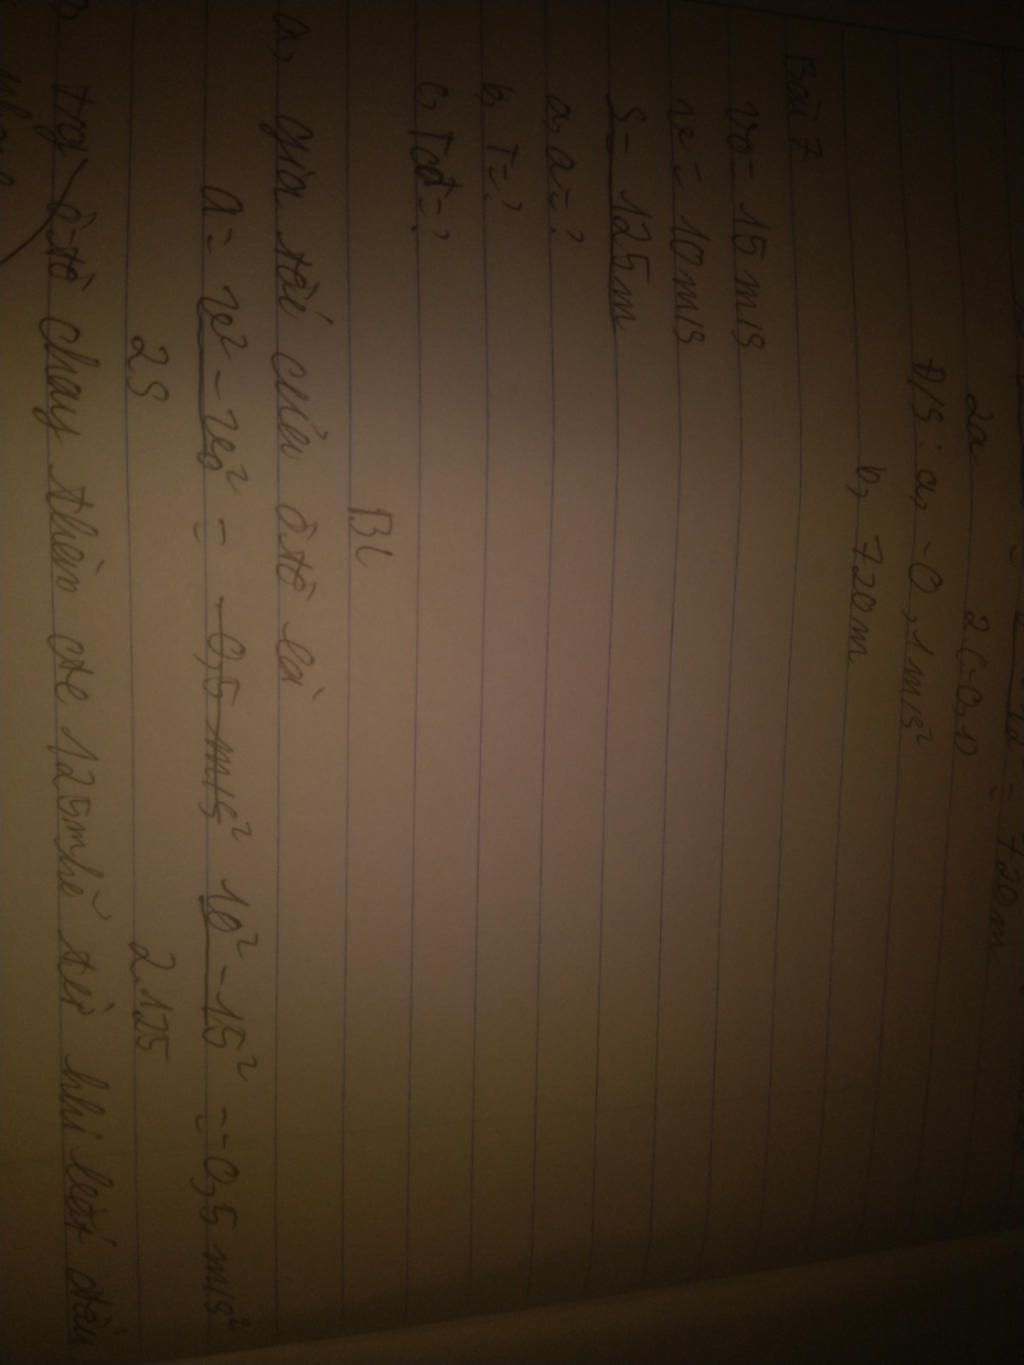 2a 2.(-0,1) = 720m
Đ/S: a, -0,1 m/s²
b, 720m
Bài 7
vo = 15 m/s
v = 10 m/s
S = 125m
a, a = ?
b, T = ?
c, Tđ = ?
BL
a, gia tốc của ôtô là
a = v² - vo² = -0,5 m/s² 10² - 15² = -0,5 m/s²
2S 2.125
tg ôtô chạy thêm đc 125m kể từ khi bắt đầu